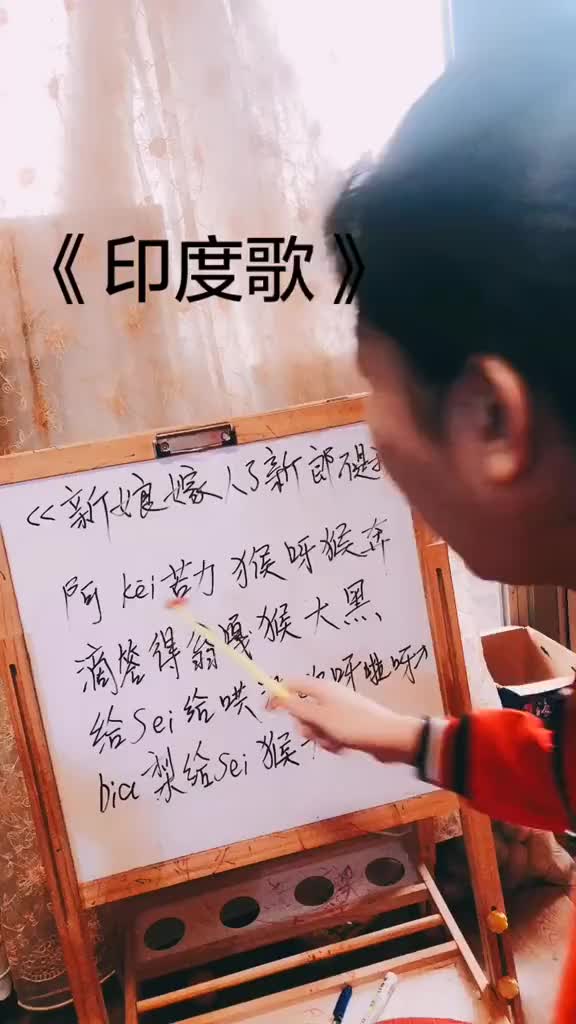 《印度歌》
<<新娘嫁人了新郎不是
阿kēi苦力猴呀猴奔
滴答得翁嘎猴大黑
给Sei给哄 呀 呀
bia梨给Sei猴